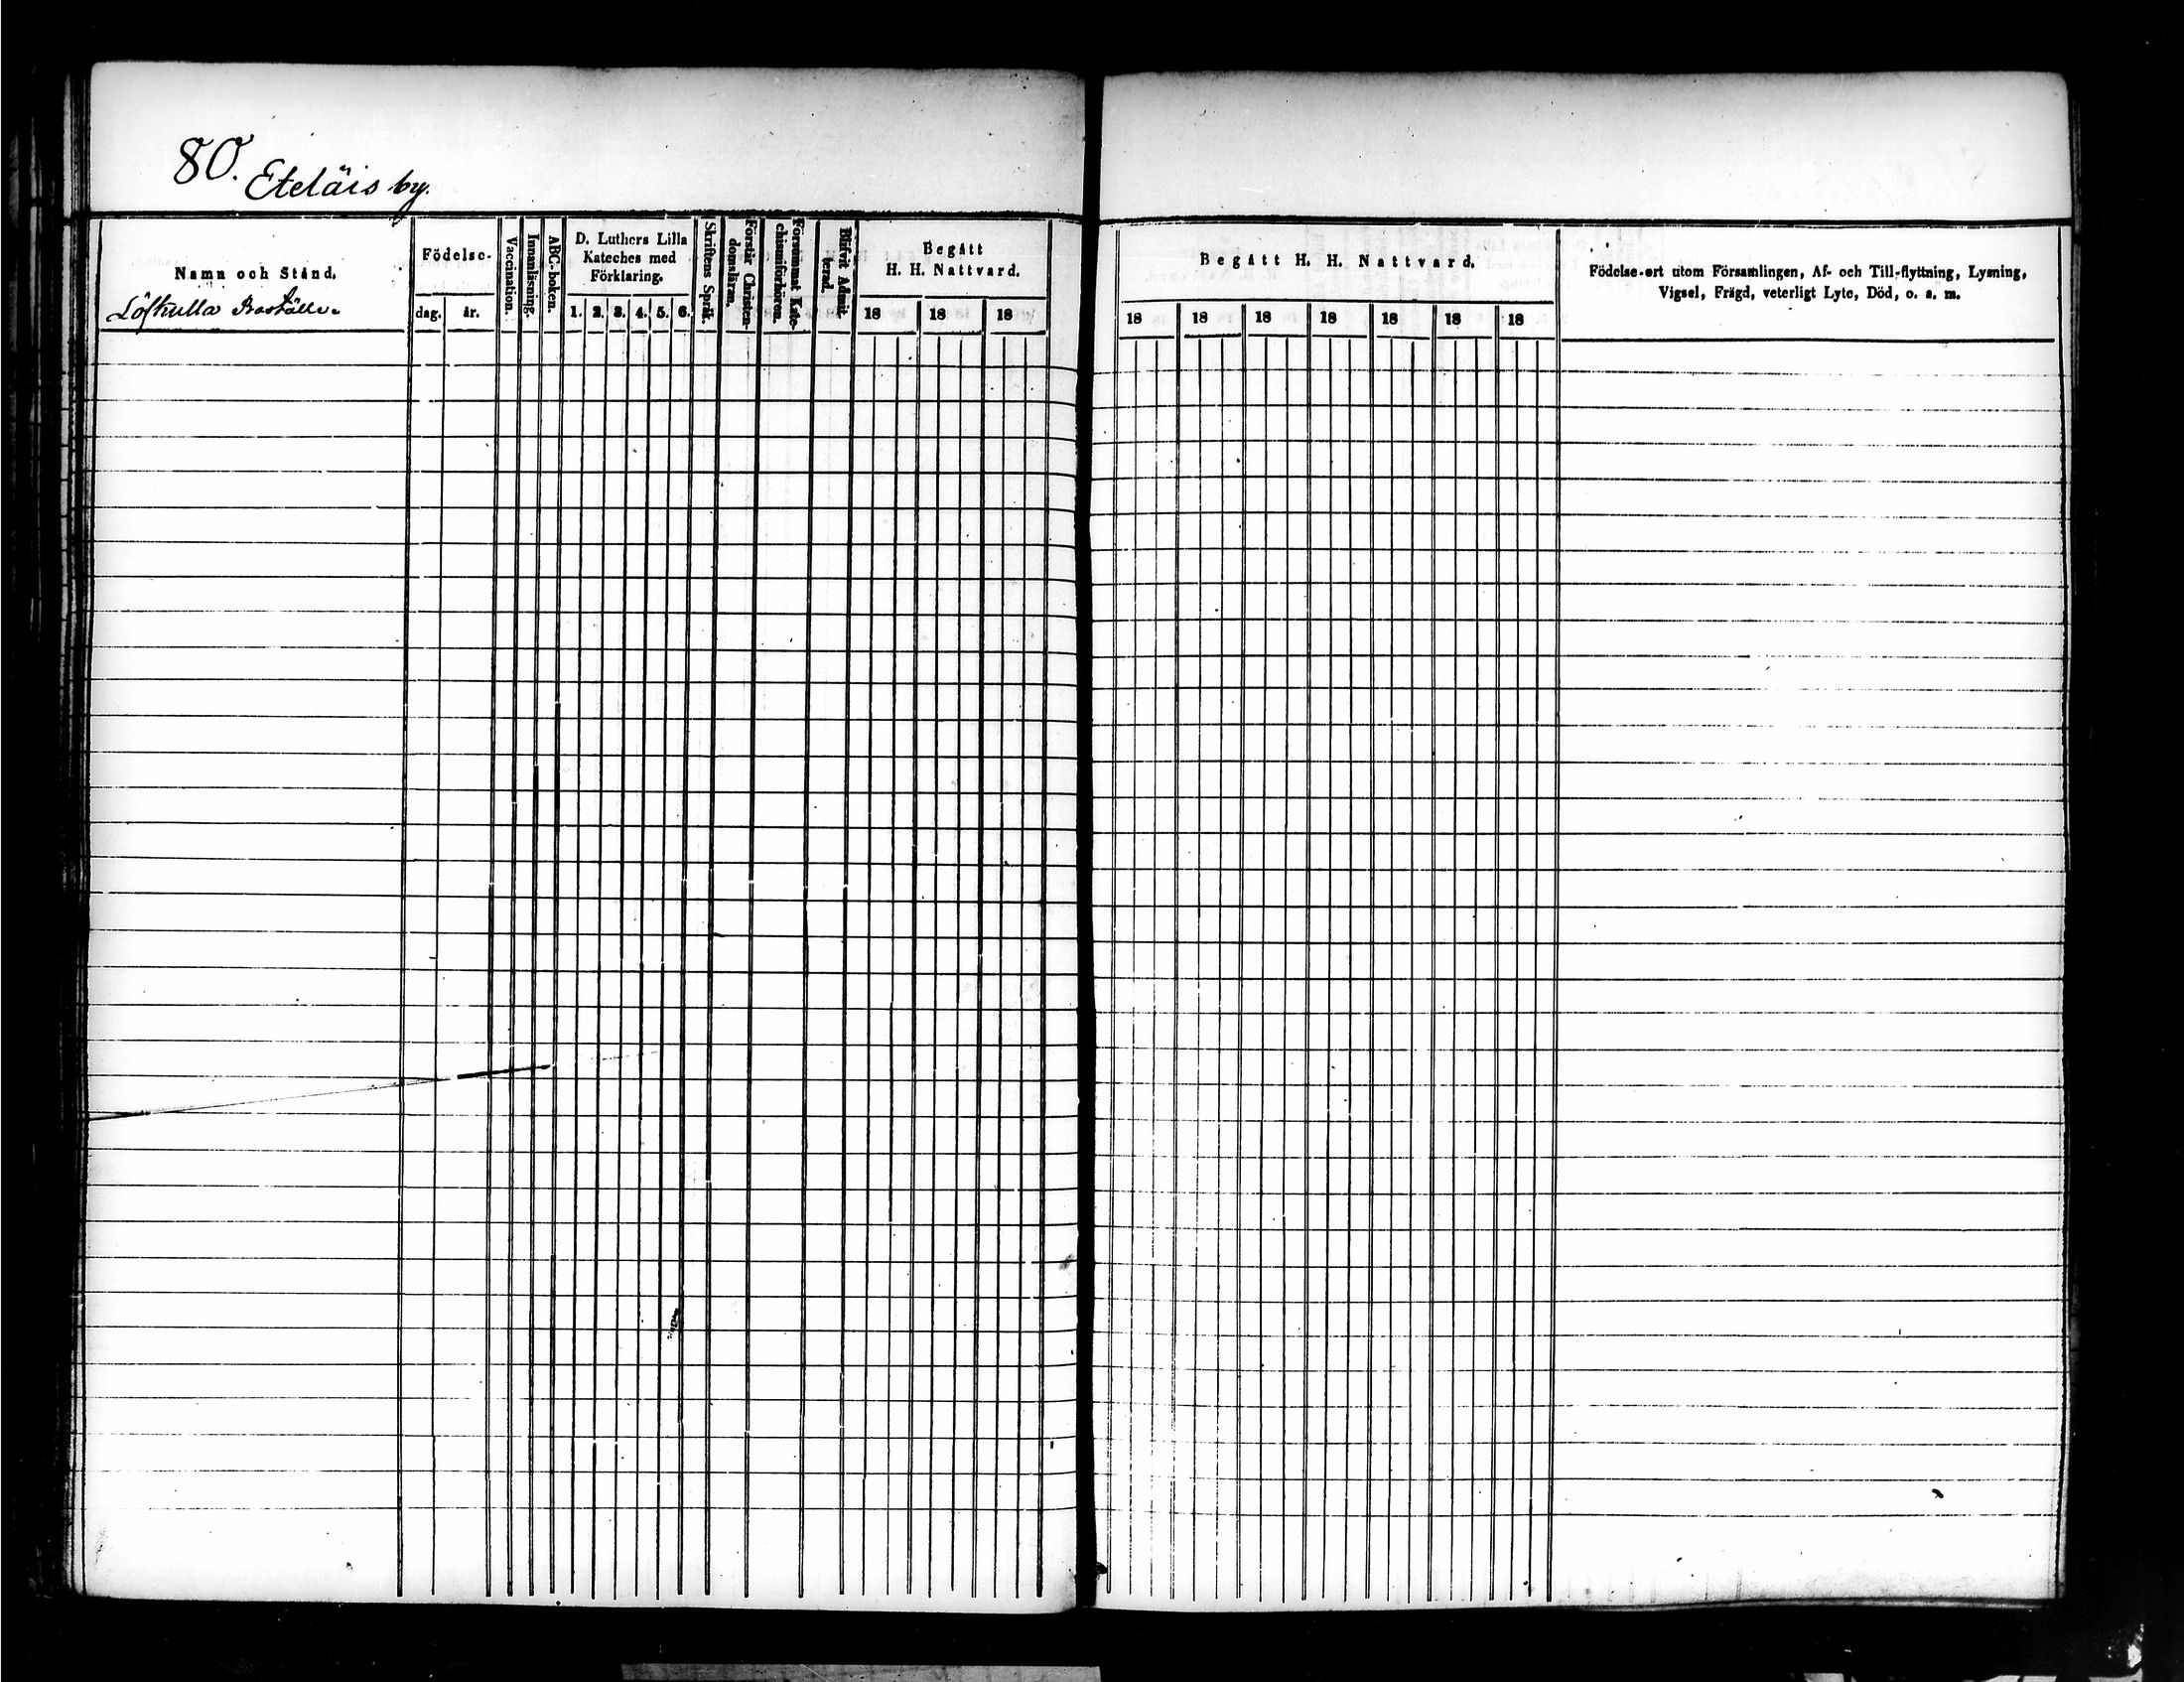 80. Eteläis by.
Namn och Stånd.
Löfkulla Boställe.
Födelse-
dag. år.
Vaccination.
Innanläsning.
ABC-boken.
D. Luthers Lilla
Kateches med
Förklaring.
1. 2. 3. 4. 5. 6.
Skriftens Språk.
Förstår Christen-
domsläran.
Försummat Kate-
chismiförhören.
Blifvit Admit-
terad.
Begått
H. H. Nattvard.
18 18 18
Begått H. H. Nattvard.
18 18 18 18 18 18 18
Födelse-ort utom Församlingen, Af- och Till-flyttning, Lysning,
Vigsel, Frägd, veterligt Lyte, Död, o. s. m.